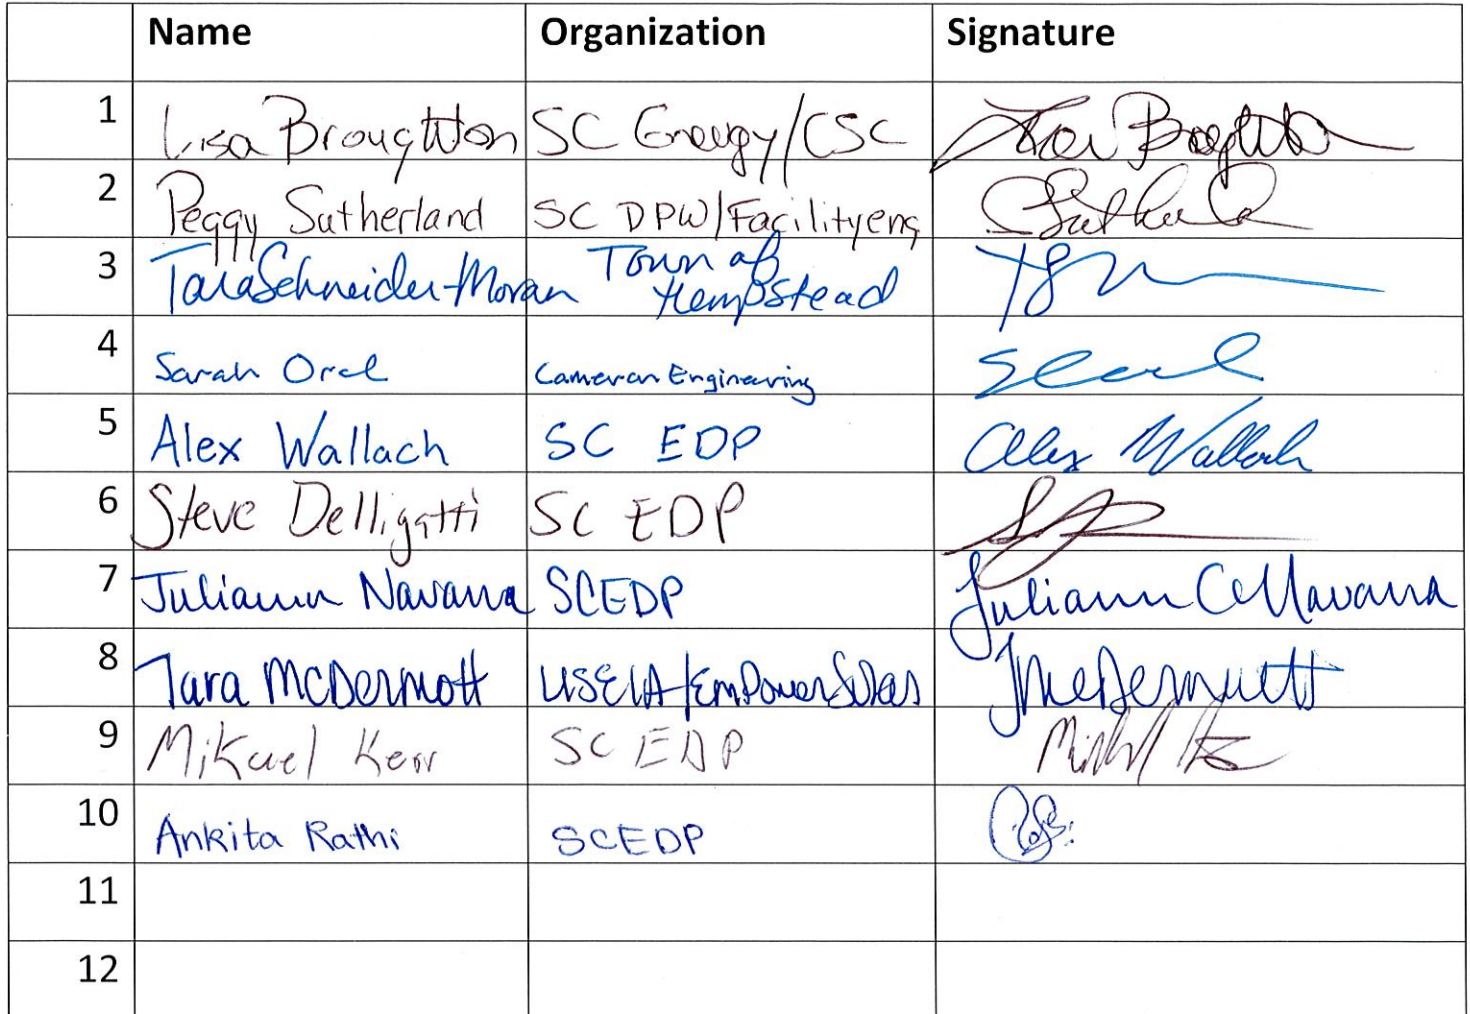 Name Organization Signature
1 Lisa Broughton SC Energy/CSC
2 Peggy Sutherland SC DPW/Facilityeng
3 Tara Schneider-Moran Town of Hempstead
4 Sarah Oral Cameron Engineering
5 Alex Wallach SC EDP Alex Wallach
6 Steve Delligatti SC EDP
7 Juliann Navarra SCEDP Juliann Navarra
8 Tara McDermott McDermott
9 Mikael Kerr SC EDP
10 Ankita Rathi SCEDP
11
12